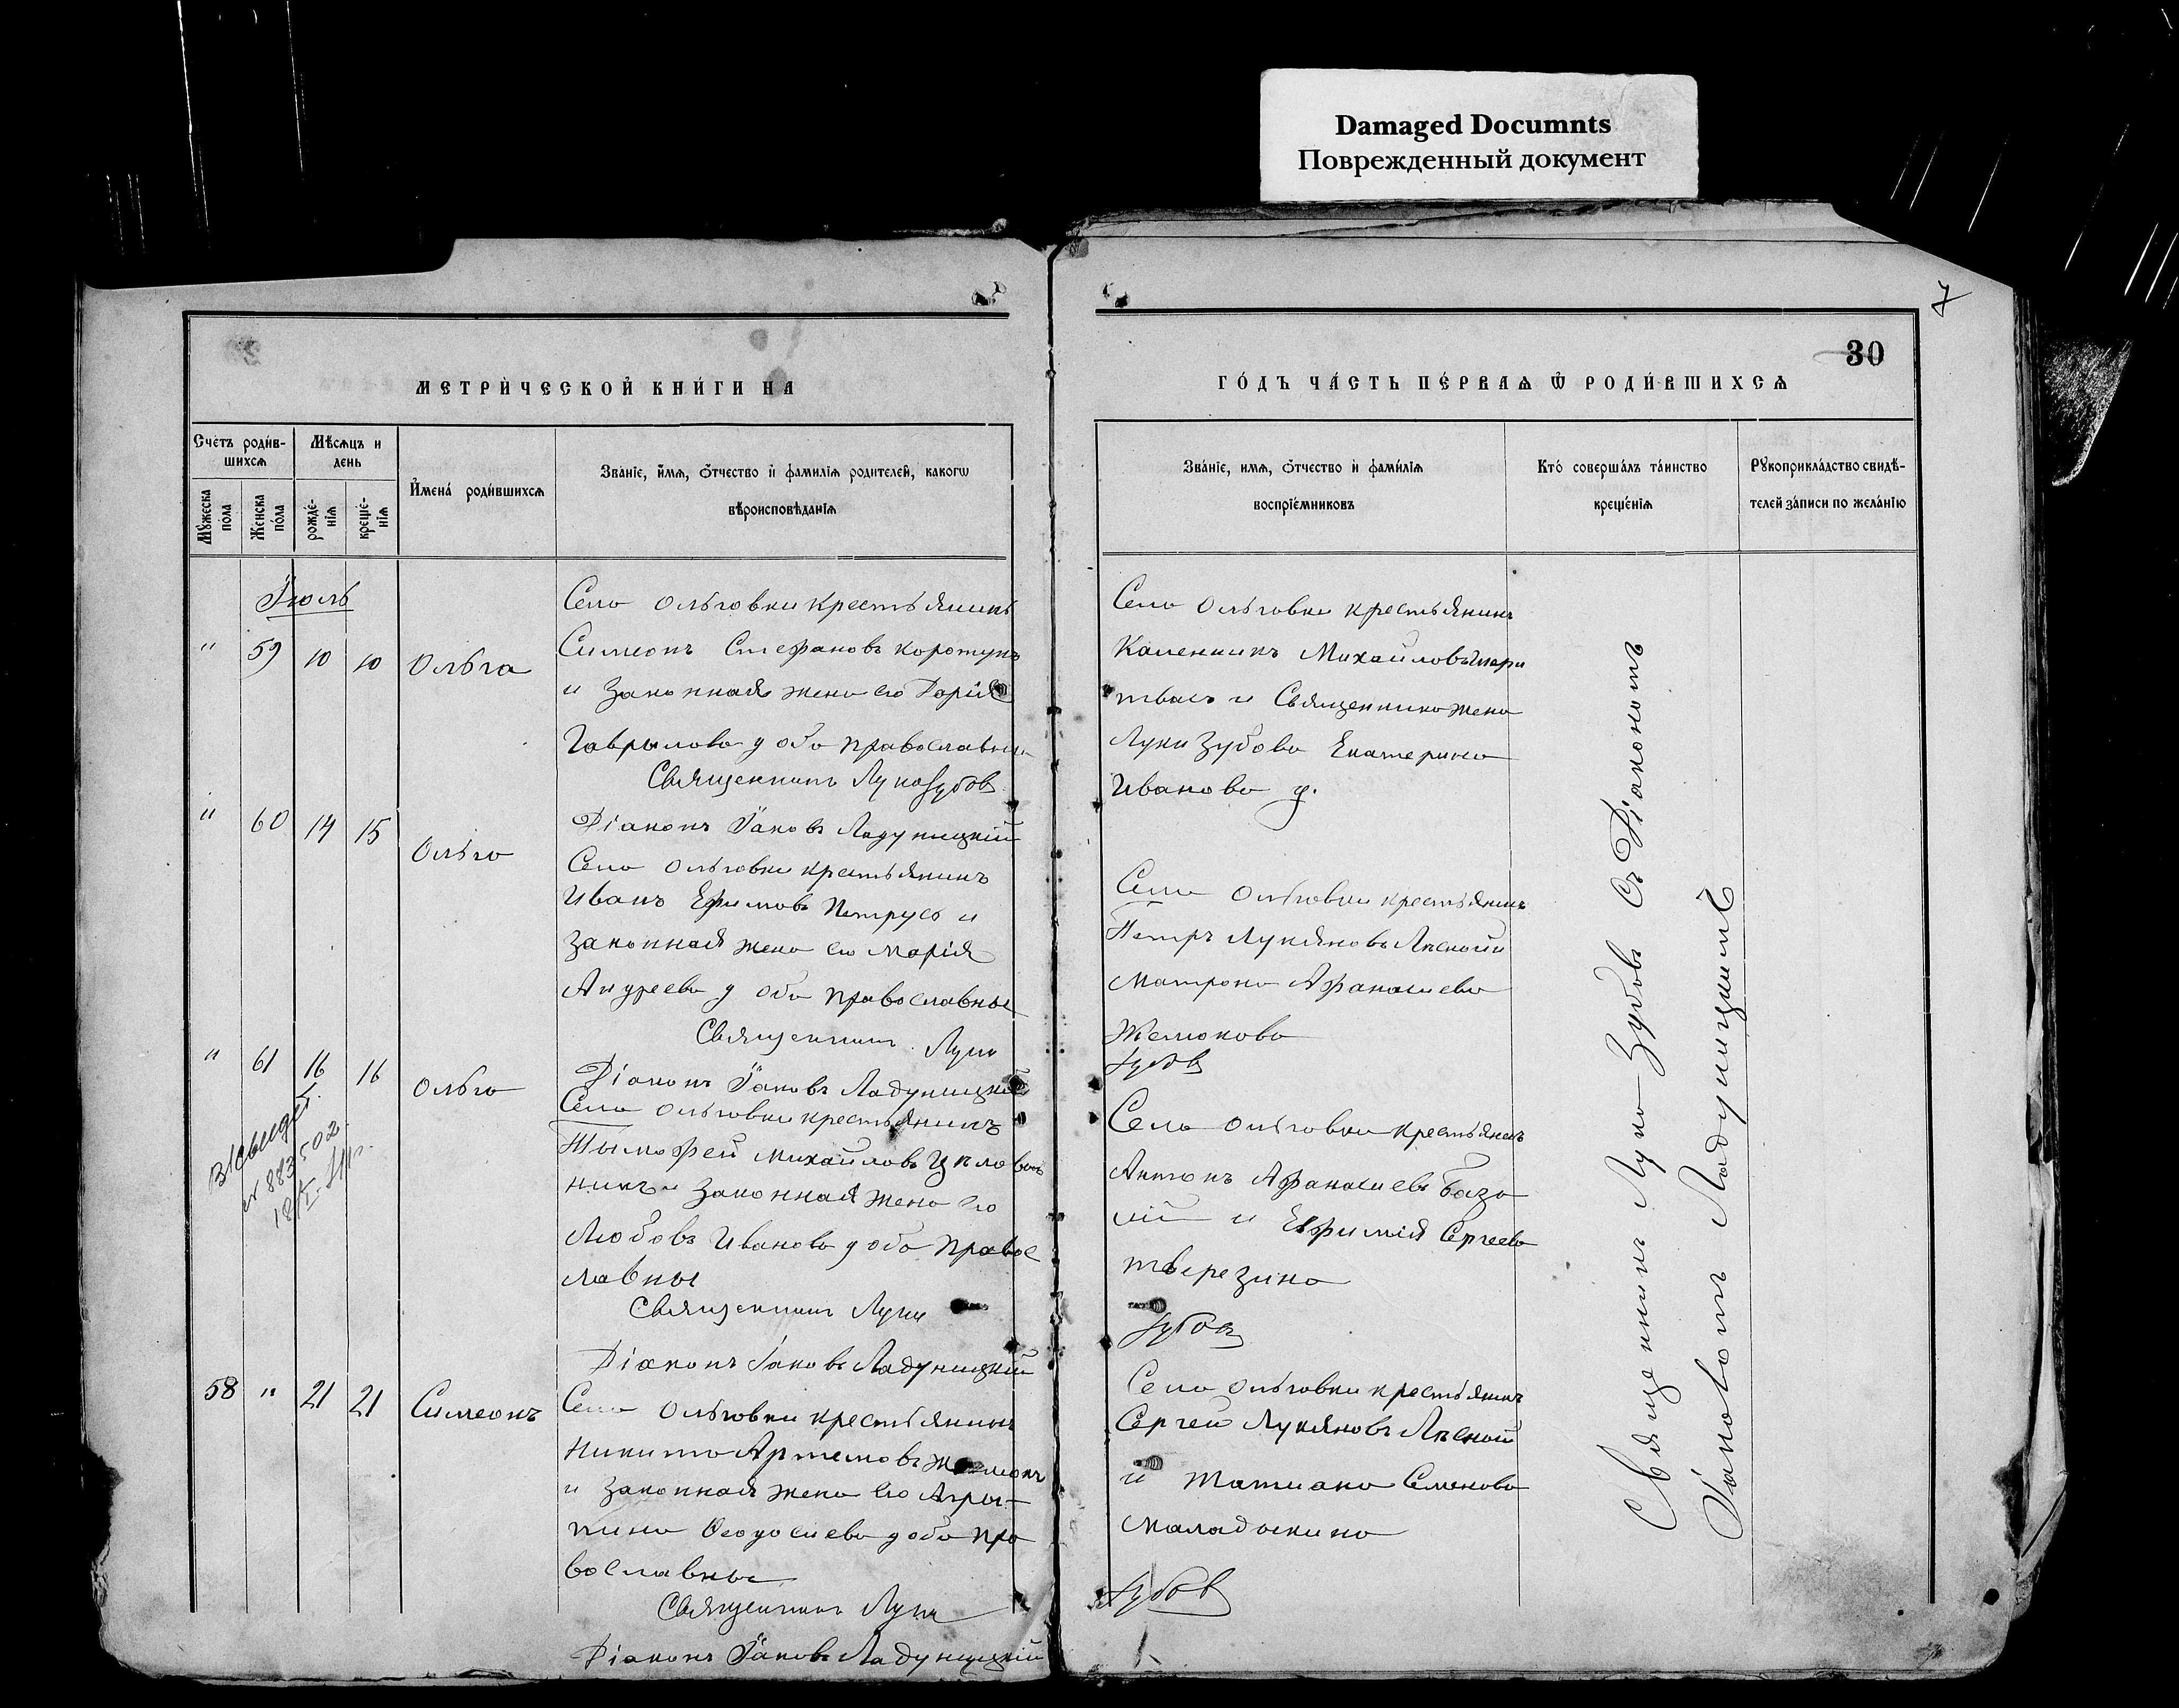 Damaged Documnts
Поврежденный документ
7
30
МЕТРИ́ЧЕСКОЙ КНИ́ГИ НА
ГО́ДЪ ЧА́СТЬ ПЕ́РВАѦ Ѿ РОДИ́ВШИХСѦ
Сче́тъ роди́в-
шихсѧ
Мѣ́сѧцъ и
день
Мꙋ́жеска
по́ла
Же́нска
по́ла
рожде́-
нїѧ
креще́-
нїѧ
И҆мена́ роди́вшихсѧ
Зва́нїе, и҆́мѧ, ѻ҆́тчество и҆ фами́лїѧ роди́телей, како́гѡ
вѣроисповѣ́данїѧ
Зва́нїе, имѧ, ѻ҆́тчество и҆ фами́лїѧ
воспрїе́мниковъ
Кто́ соверша́лъ та́инство
креще́нїѧ
Рꙋкоприкла́дство свидѣ́-
телей за́писи по жела́нїю
Іюль
" 59 10 10 Ольга
Села Ольговки крестьянинъ
Симеонъ Стефановъ Коротунъ
и законная жена его Дарія
Гаврилова оба православны
Священникъ Лука Зубовъ
Діаконъ Іаковъ Ладуницкій
Села Ольговки крестьянинъ
Михайловъ
и Священника жена
Луки Зубова Екатерина
Иванова
" 60 14 15 Ольга
Села Ольговки крестьянинъ
Иванъ Ефимовъ Петрусь и
законная жена его Марія
Андреева оба православные
Священникъ Лука
Діаконъ Іаковъ Ладуницкій
Села Ольговки крестьянинъ
Петръ Лукяновъ Лясной и
Матрона Афанасиева
Желюкова
Зубовъ
" 61 16 16 Ольга
№ 883502
Села Ольговки крестьянинъ
Тымофей Михайловъ
никъ и законная жена его
Любовь Иванова оба правос
лавны
Священникъ Лука
Діаконъ Іаковъ Ладуницкій
Села Ольговки крестьянинъ
Антонъ Афанасиевъ База
лій и Евфимія Сергеева
тверезина
Зубовъ
58 " 21 21 Симеонъ
Села Ольговки крестьянинъ
Никита Артемовъ
и законная жена его Агры-
пина Феодосиева оба пра
вославные
Священникъ Лука
Діаконъ Іаковъ Ладуницкій
Села Ольговки крестьянинъ
Сергей Лукяновъ Лясной
и Татиана Семенова
Маладыкина
Зубовъ
Священникъ Лука Зубовъ съ Діакономъ
Іаковомъ Ладуницкимъ